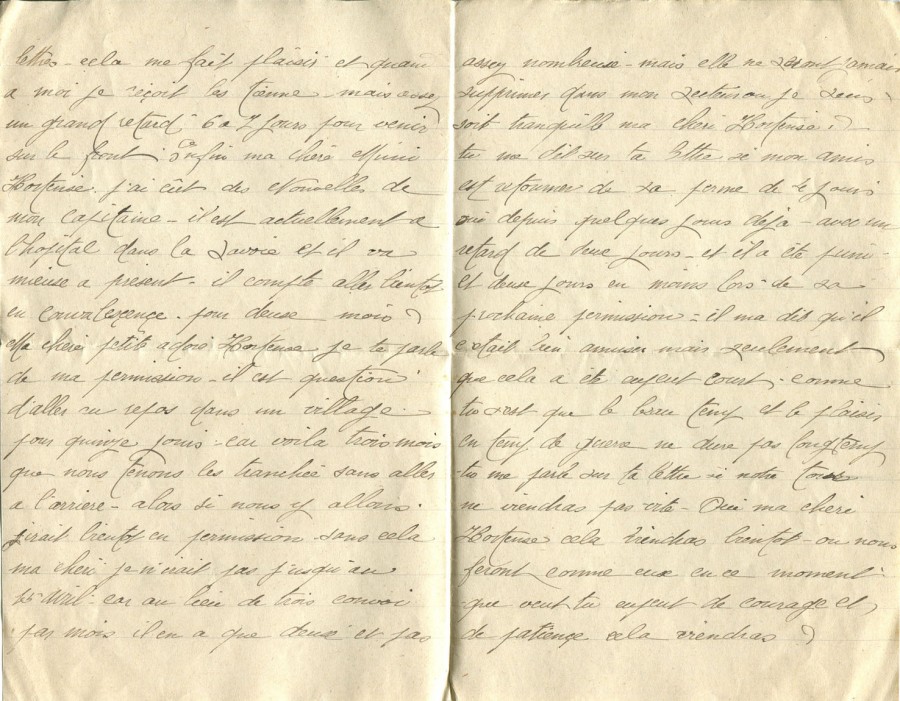 lettres - cela me fait plaisir et quand
a moi je reçoit les tienne - mais assez
un grand retard 6 a 7 jours pour venir
sur le front. Enfin ma chère Mimi
Hortense. j'ai eût des Nouvelles de
mon capitaine - il est actuellement a
l'hopital dans la Savoie et il va
mieuse a présent - il compte aller bientot
en convalesçençe. pour deuse mois
Ma cheri petite adoré Hortense je te parle
de ma permission - il est question
d'aller au repos dans un village.
pour quinze jours - car voila trois mois
que nous tenons les tranchée sans aller
a l'arriere - alors si nous y allons.
j'irait bientot en permission sans cela
ma cheri je n'irait pas jusqu'au
15 avril. car au lieu de trois convoi
par mois il en a que deuse et pas
assez nombreuse - mais elle ne seront jamais
supprimer dans mon secteur ou je suis
soit tranquille ma cheri Hortense.
tu me dit sur ta lettre si mon amis
est retourner de sa perme de jours
oui depuis quelques jours déja - avec un
retard de deuse jours - et il a été puni -
et deuse jours en moins lors de sa
prochaine permission = il ma dit qu'il
c'etait bien amuser mais seulement
que cela a été court. comme
tu sest que le beau temp et le plaisir
en temp de guerre ne dure pas longtemp
tu me parle sur ta lettre si notre tour
ne viendras pas vite - Oui ma cheri
Hortense cela viendras bientot - ou nous
feront comme eux en ce moment.
que veut tu de courage et
de patiençe cela viendras